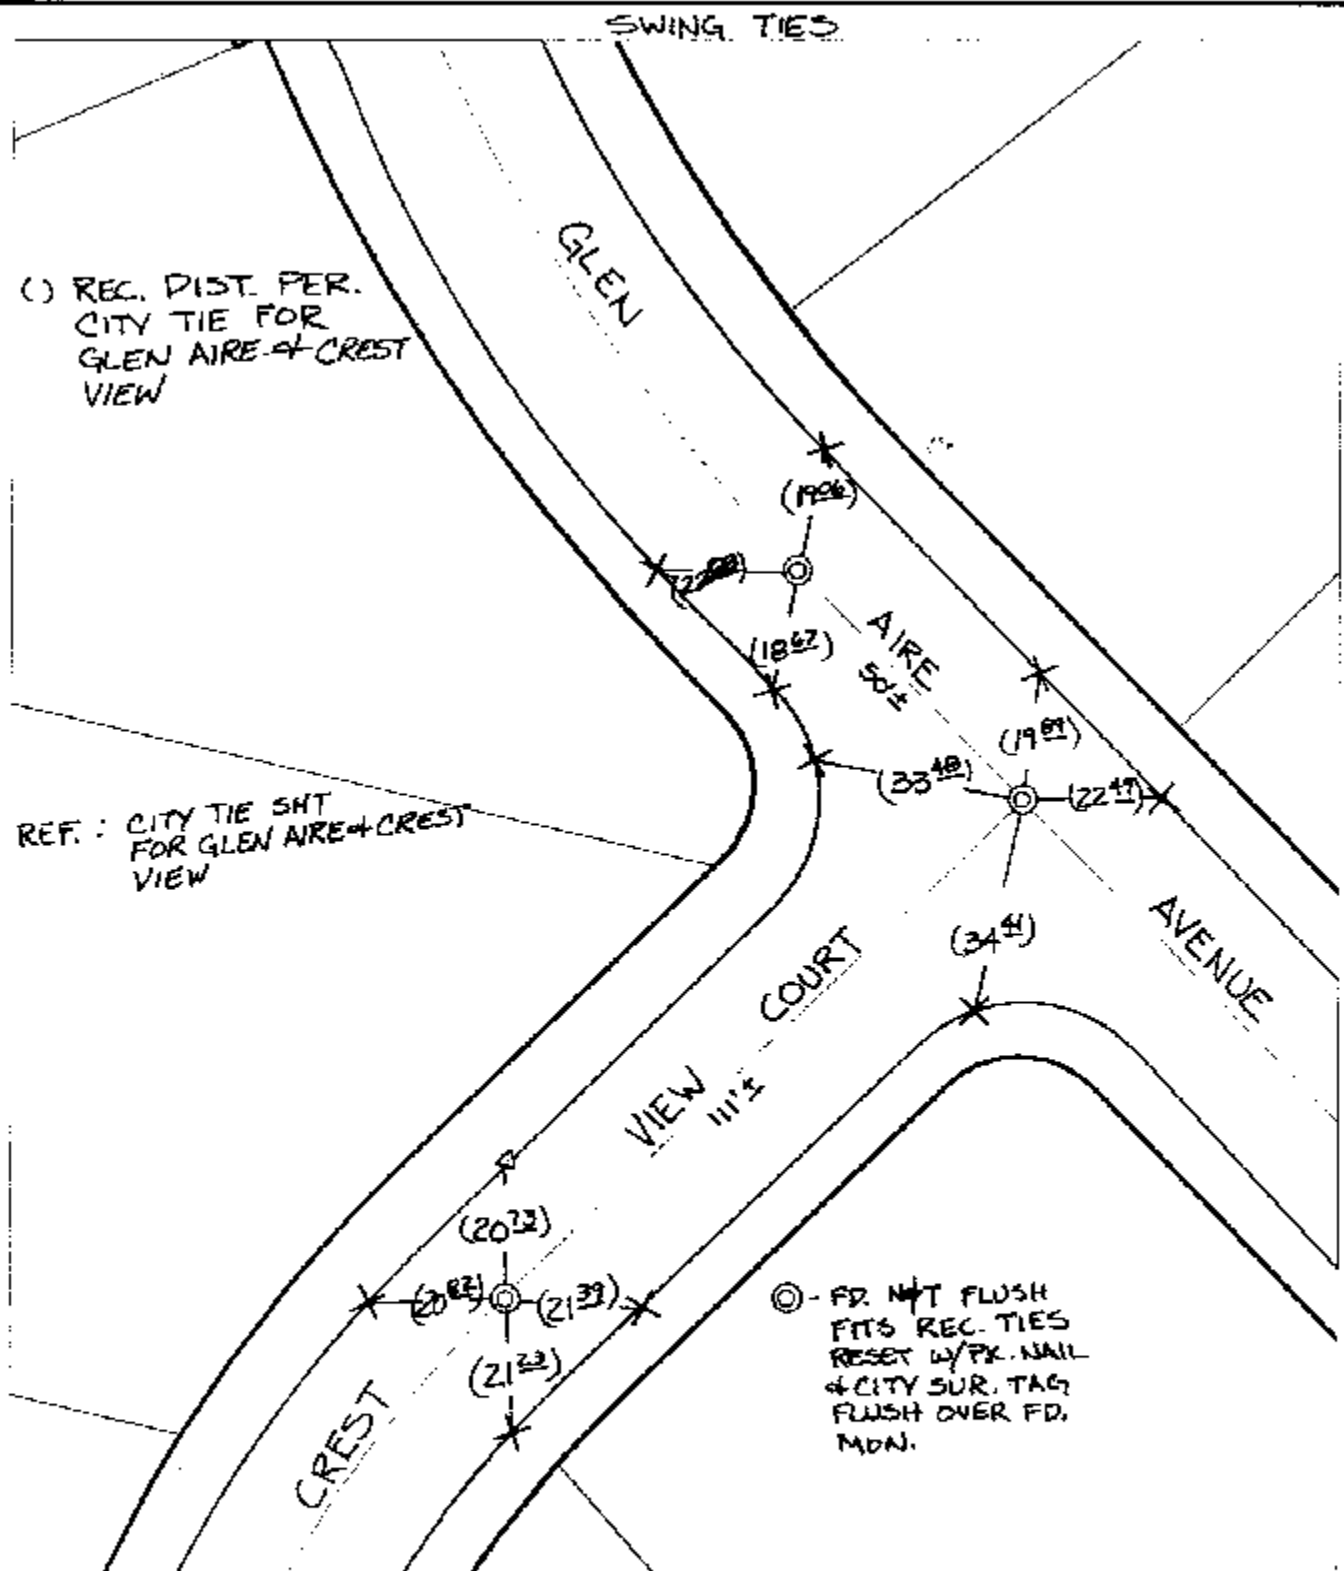 SWING TIES
GLEN
() REC. DIST. PER.
CITY TIE FOR
GLEN AIRE & CREST
VIEW
(19 06)
(18 67)
AIRE
50'±
(19 89)
(33 48)
(22 49)
REF. : CITY TIE SHT
FOR GLEN AIRE & CREST
VIEW
(34 41)
AVENUE
COURT
VIEW
111'±
(20 73)
(20 82)
(21 39)
(21 23)
CREST
◎ - FD. N&T FLUSH
FITS REC. TIES
RESET W/PK. NAIL
& CITY SUR. TAG
FLUSH OVER FD.
MON.